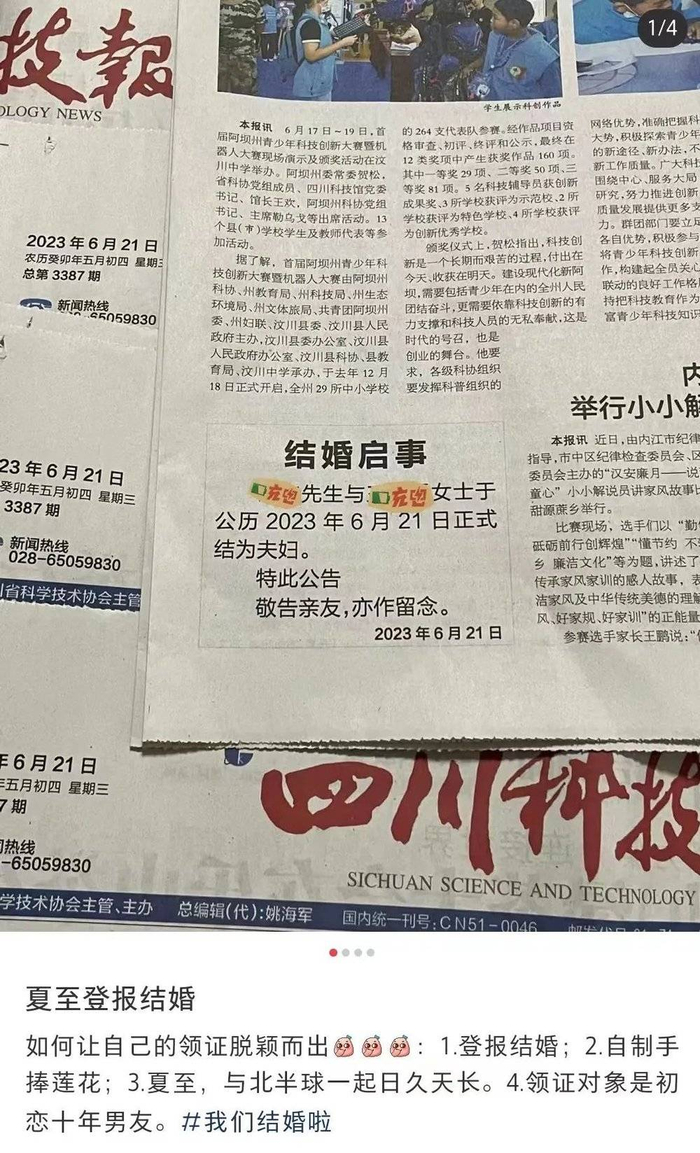 1/4
技報
OLOGY NEWS
2023年6月21日
农历癸卯年五月初四 星期三
总第3387期
新闻热线
65059830
23年6月21日
癸卯年五月初四 星期三
3387期
新闻热线
028-65059830
川省科学技术协会主管
年6月21日
年五月初四 星期三
7期
闻热线
-65059830
学生展示科创作品
本报讯 6月17日~19日,首
届阿坝州青少年科技创新大赛暨机
器人大赛现场演示及颁奖活动在汶
川中学举办。阿坝州委常委贺松,
省科协党组成员、四川科技馆党委
书记、馆长王欢,阿坝州科协党组
书记、主席勒乌戈等出席活动。13
个县(市)学校学生及教师代表等参
加活动。
据了解,首届阿坝州青少年科
技创新大赛暨机器人大赛由阿坝州
科协、州教育局、州科技局、州生态
环境局、州文体旅局、共青团阿坝州
委、州妇联、汶川县委、汶川县人民
政府主办,汶川县委办公室、汶川县
人民政府办公室、汶川县科协、县教
育局、汶川中学承办,于去年12月
18日正式开启,全州29所中小学校
的264支代表队参赛。经作品项目资
格审查、初评、终评和公示,最终在
12类奖项中产生获奖作品160项。
其中一等奖29项、二等奖50项、三
等奖81项。5名科技辅导员获创新
成果奖、3所学校获评为示范校、2所
学校获评为特色学校、4所学校获评
为创新优秀学校。
颁奖仪式上,贺松指出,科技创
新是一个长期而艰苦的过程,付出在
今天、收获在明天。建设现代化新阿
坝,需要包括青少年在内的全州人民
团结奋斗,更需要依靠科技创新的有
力支撑和科技人员的无私奉献,这是
时代的号召,也是
创业的舞台。他要
求,各级科协组织
要发挥科普组织的
网络优势,准确把握科
大势,积极探索青少年
的新途径、新办法,不
新工作质量。广大科技
围绕中心、服务大局
研究,努力推进创新
质量发展提供更多支
力。群团部门要立足
各自优势,积极参与
将青少年科技创新
作,构建起全员关心
联动的良好工作格局
持把科技教育作为
富青少年科技知识
内
举行小小解
本报讯 近日,由内江市纪律
指导,市中区纪律检查委员会、区
委员会主办的“汉安廉月——说
童心”小小解说员讲家风故事比
甜源莲乡举行。
比赛现场,选手们以“勤
砥砺前行创辉煌”“懂节约 不
乡 廉洁文化”等为题,讲述了
传承家风家训的感人故事,表
洁家风及中华传统美德的理解
风、好家规、好家训”的正能量
参赛选手家长王鹏说:“
结婚启事
充电先生与充电女士于
公历2023年6月21日正式
结为夫妇。
特此公告
敬告亲友,亦作留念。
2023年6月21日
四川科技
SICHUAN SCIENCE AND TECHNOLOGY
学技术协会主管、主办 总编辑(代):姚海军 国内统一刊号:CN51-0046
夏至登报结婚
如何让自己的领证脱颖而出:1.登报结婚;2.自制手
捧莲花;3.夏至,与北半球一起日久天长。4.领证对象是初
恋十年男友。#我们结婚啦